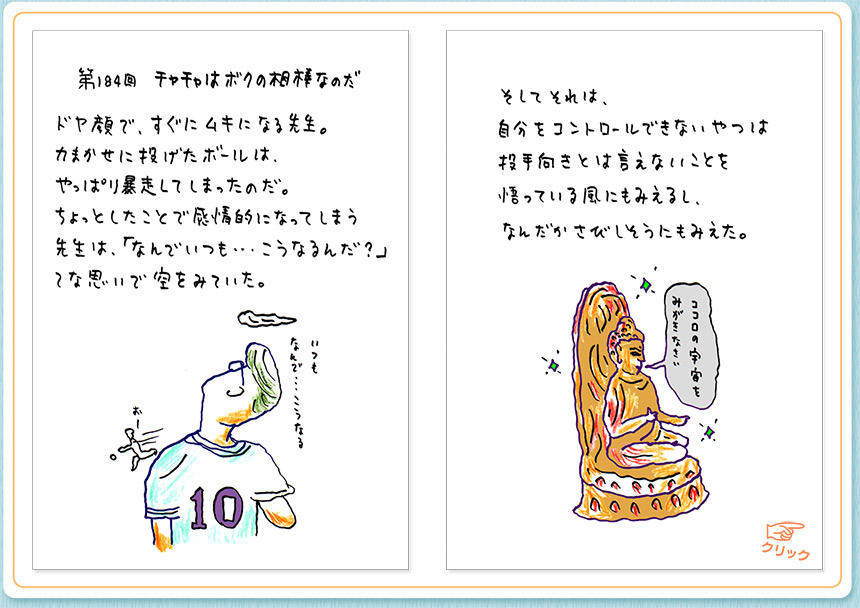 第184回 チャチャはボクの相棒なのだ
ドヤ顔で、すぐにムキになる先生。
力まかせに投げたボールは、
やっぱり暴走してしまったのだ。
ちょっとしたことで感情的になってしまう
先生は、「なんでいつも・・・こうなるんだ?」
てな思いで空をみていた。
いつも
なんで・・・こうなる
おー
10
そしてそれは、
自分をコントロールできないやつは
投手向きとは言えないことを
悟っている風にもみえるし、
なんだかさびしそうにもみえた。
ココロの宇宙を
みがきなさい
クリック